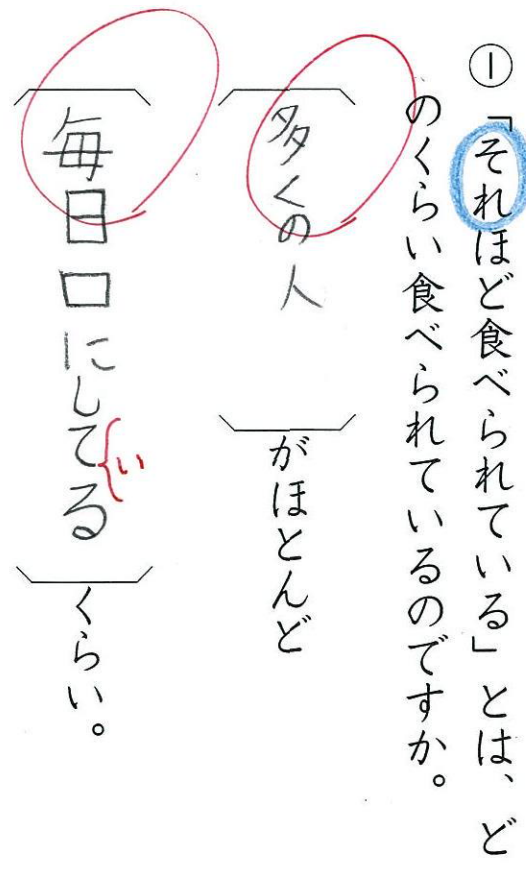 ①「それほど食べられている」とは、ど
のくらい食べられているのですか。
〔多くの人〕がほとんど
〔毎日口にしてる〕くらい。
い